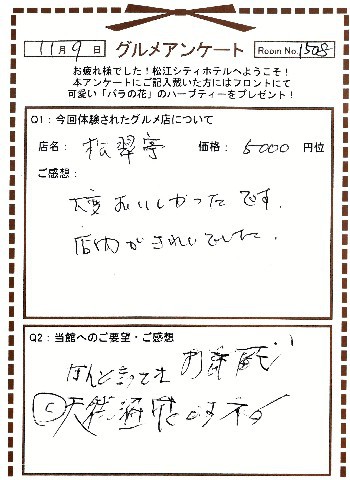 11月9日 グルメアンケート Room No.1508
お疲れ様でした!松江シティホテルへようこそ!
本アンケートにご記入戴いた方にはフロントにて
可愛い「バラの花」のハーブティーをプレゼント!
Q1:今回体験されたグルメ店について
店名: 松翠亭 価格: 5000 円位
ご感想:
大変おいしかったです。
店内がきれいでした。
Q2:当館へのご要望・ご感想
ほんと言っても お部屋
天然